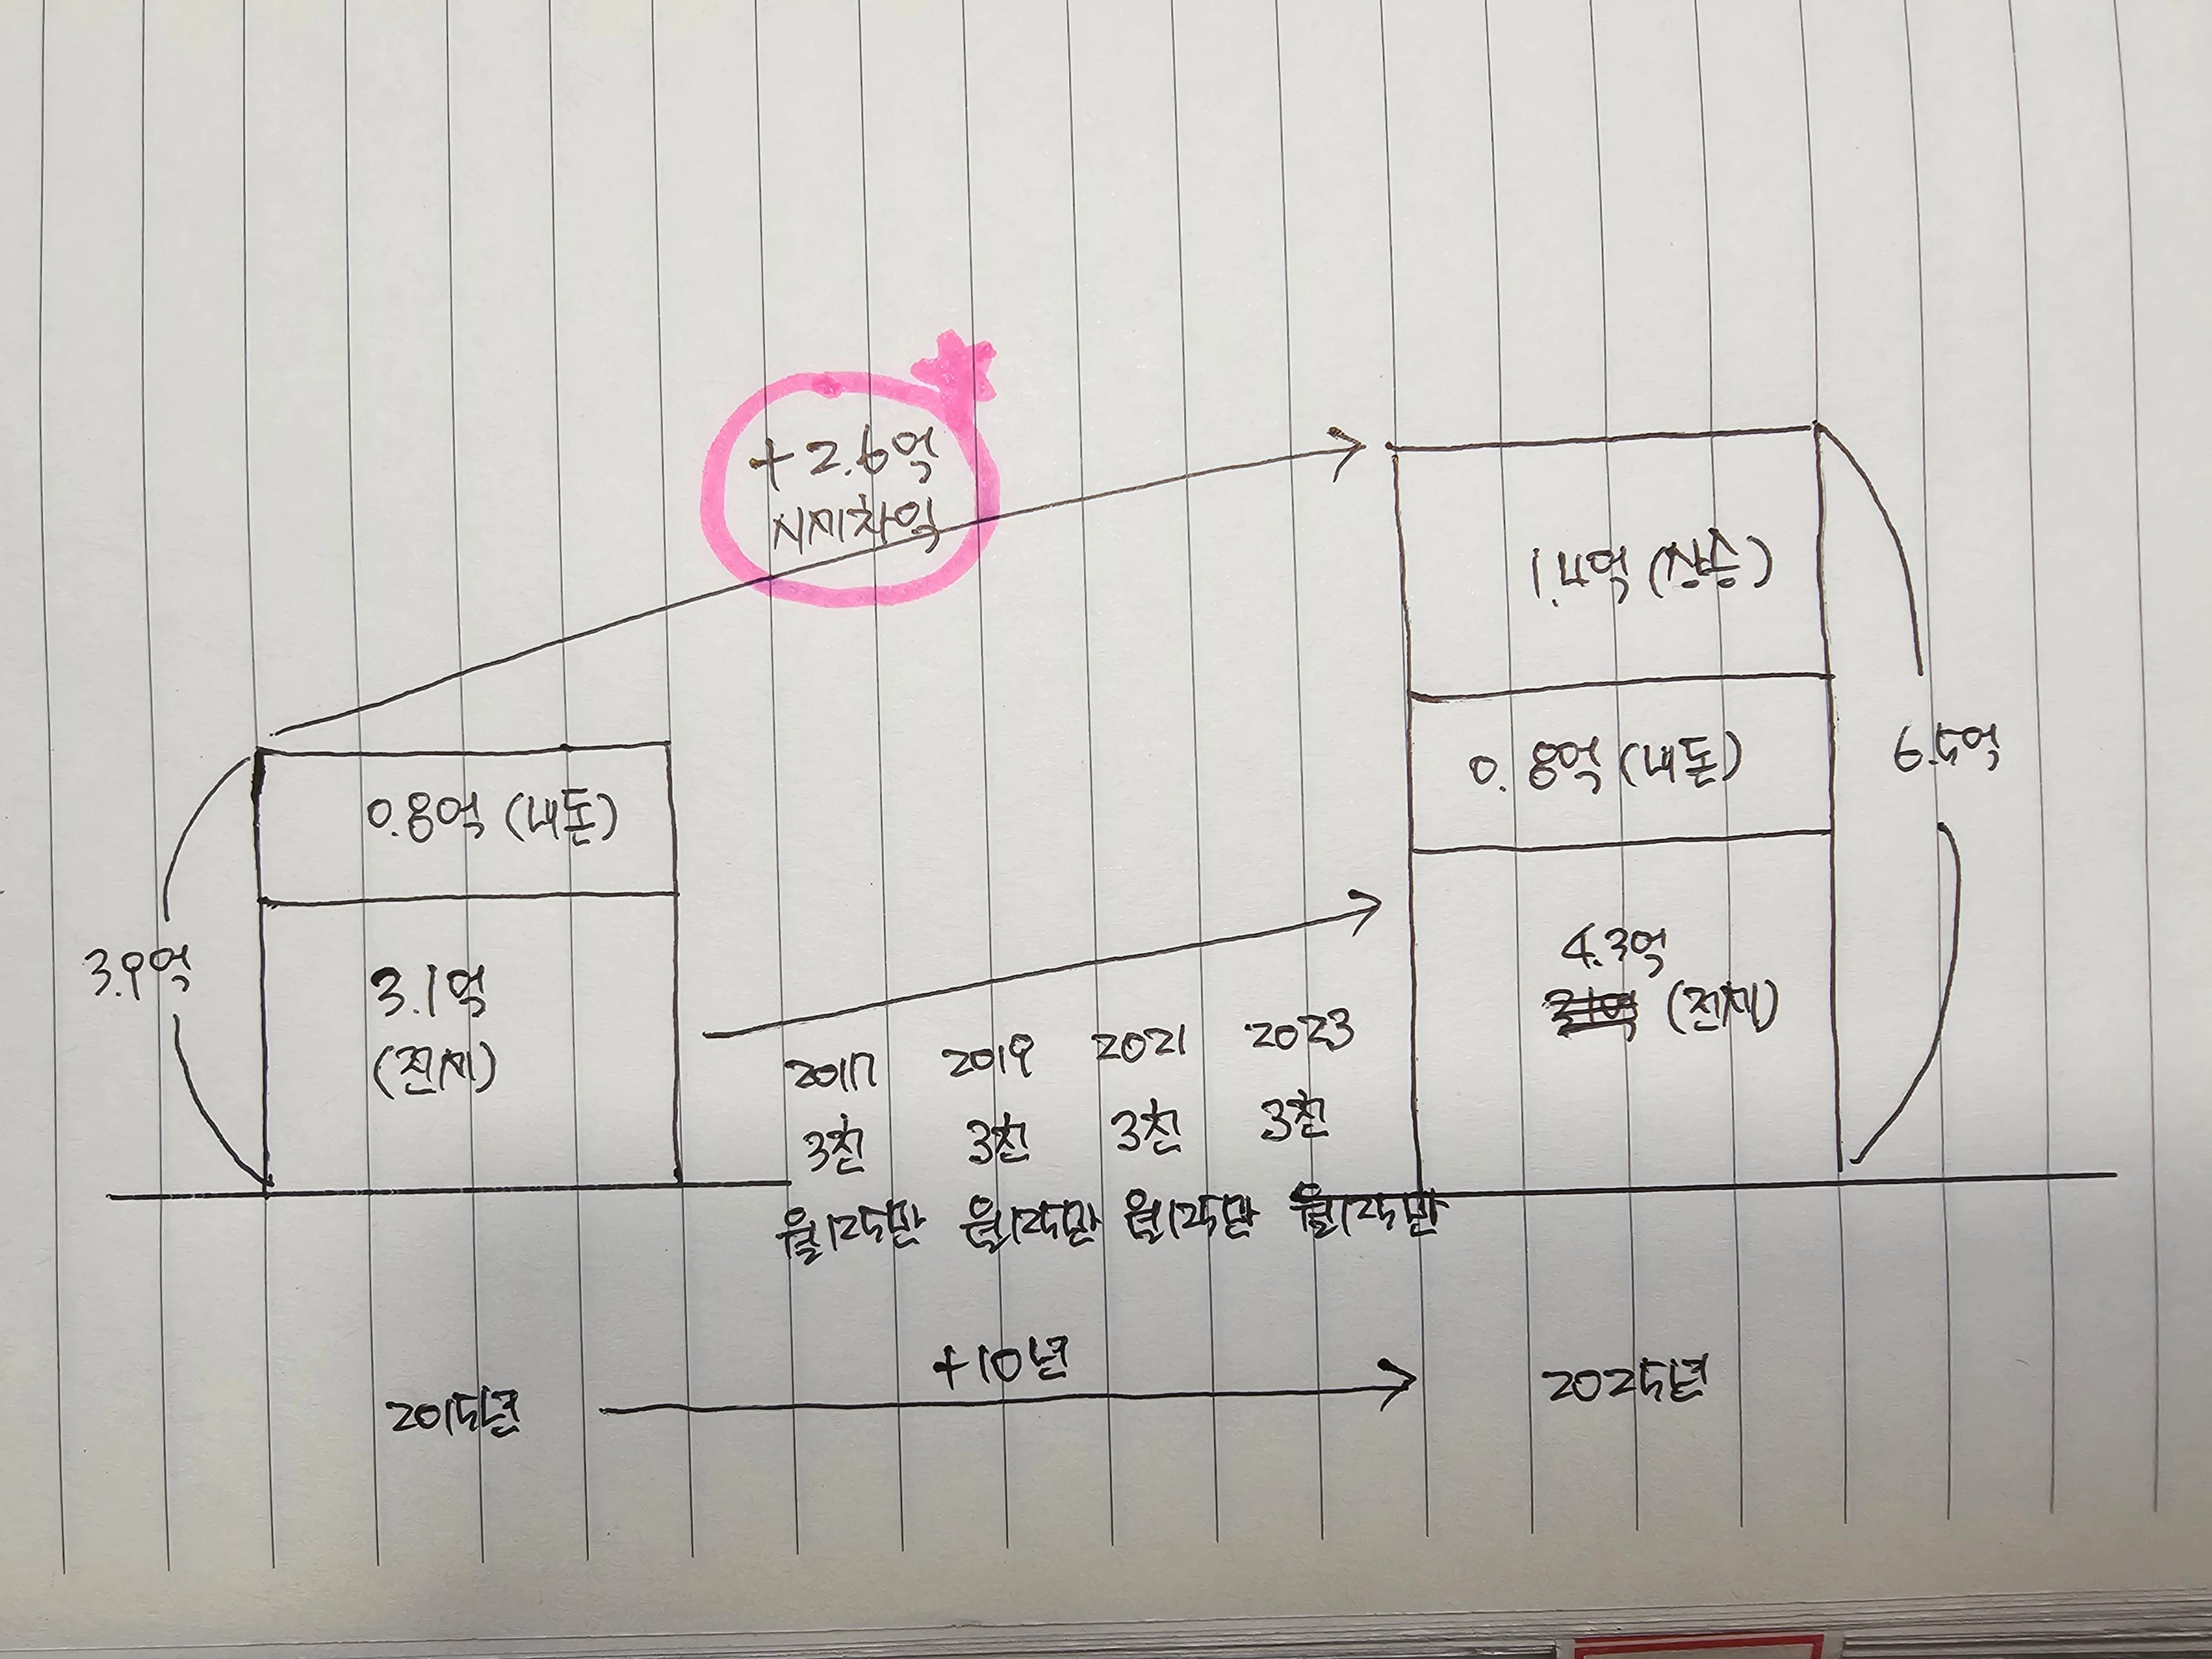 +2.6억
시세차익
1.4억 (상승)
0.8억 (내돈)
6.5억
0.8억 (내돈)
3.9억
3.1억
(전세)
4.3억
(전세)
2017 2019 2021 2023
3천 3천 3천 3천
월125만 월125만 월125만 월125만
+10년
2015년 2025년